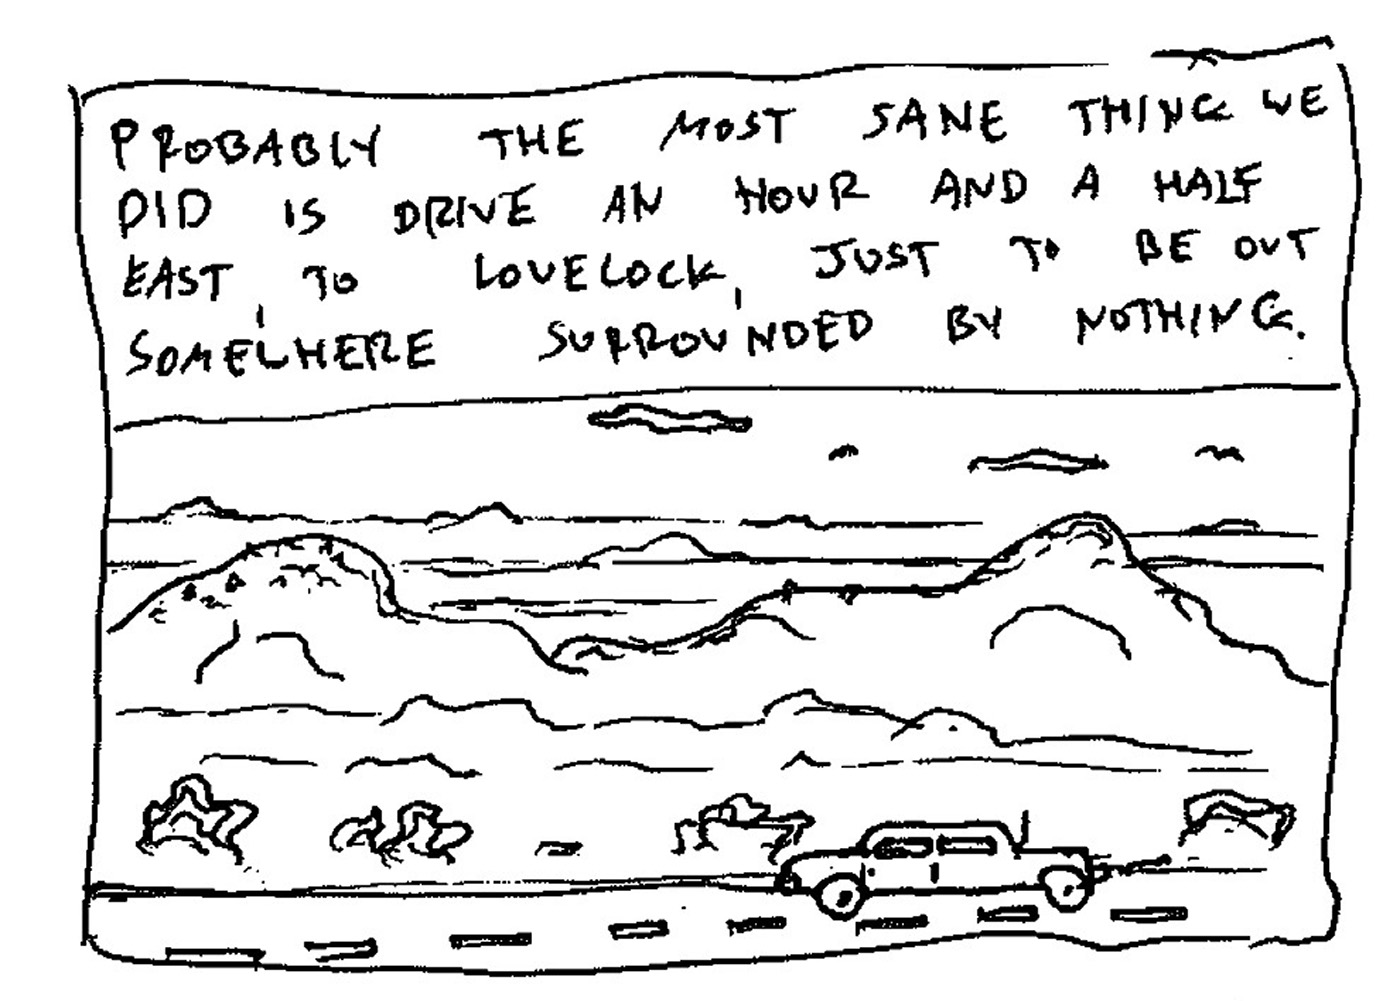 PROBABLY THE MOST SANE THING WE
DID IS DRIVE AN HOUR AND A HALF
EAST, TO LOVELOCK, JUST TO BE OUT
SOMEWHERE SURROUNDED BY NOTHING.